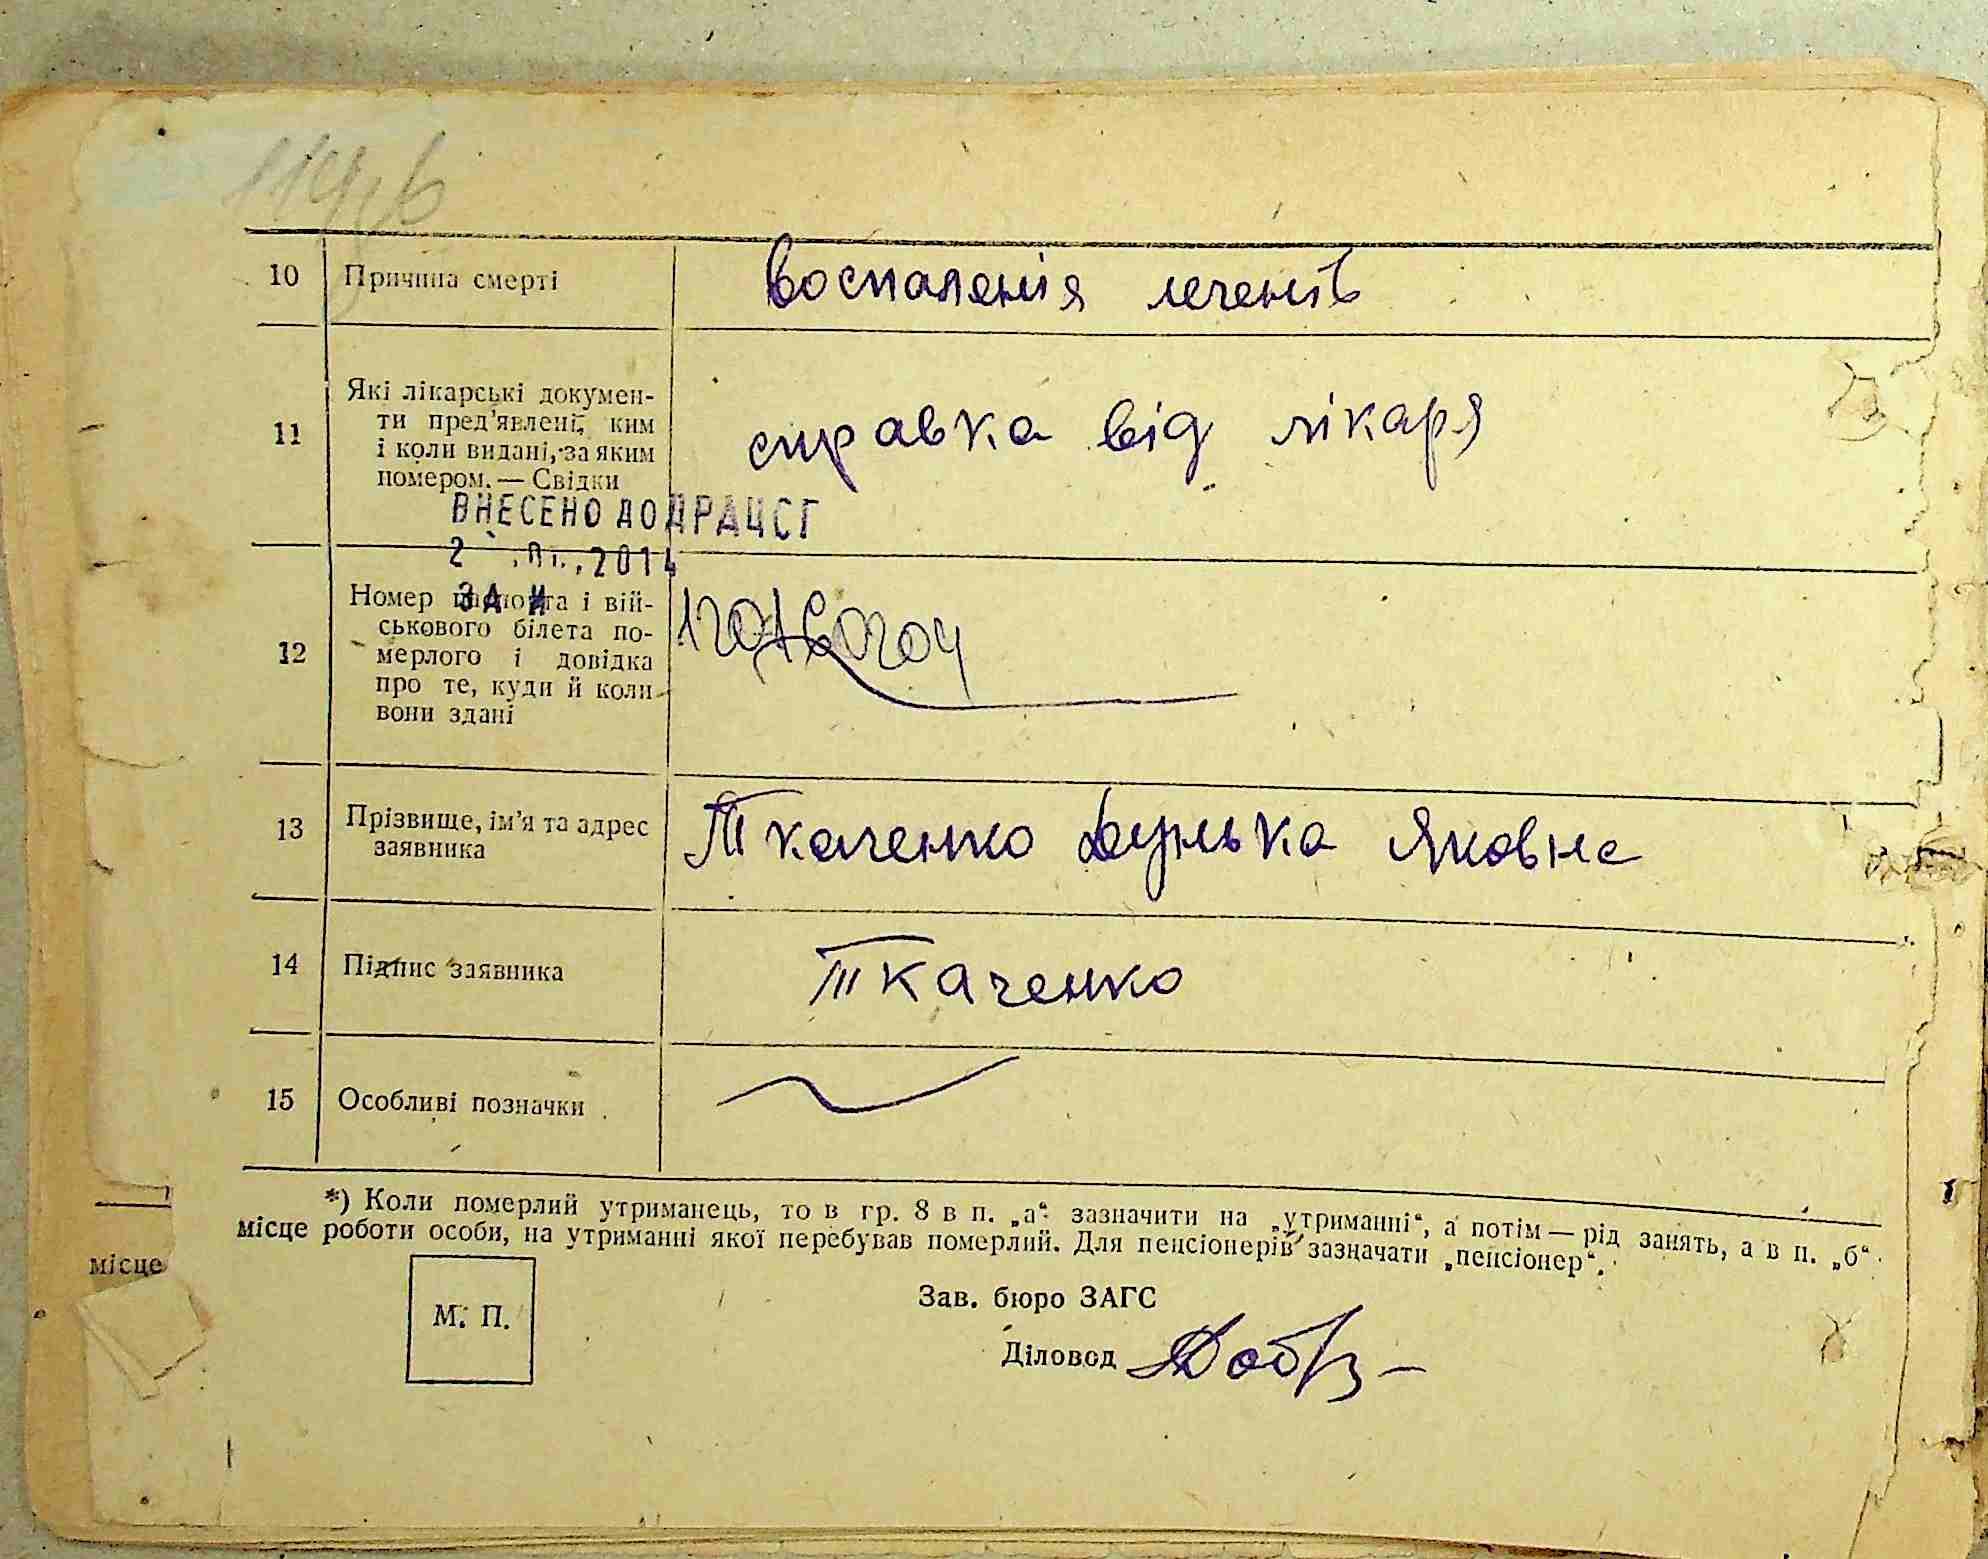 10 Причина смерті воспаленія леченів
11 Які лікарські докумен-
ти пред'явлені, ким
і коли видані, за яким
номером. — Свідки
справка від лікаря
ВНЕСЕНО ДО ДРАЦСГ
2014
ЗА №
12 Номер паспорта і вій-
ськового білета по-
мерлого і довідка
про те, куди й коли
вони здані
13 Прізвище, ім'я та адрес
заявника
Ткаченко Дунька Яковна
14 Підпис заявника Ткаченко
15 Особливі позначки
*) Коли померлий утриманець, то в гр. 8 в п. „а“ зазначити на „утриманні“, а потім — рід занять, а в п. „б“
місце роботи особи, на утриманні якої перебував померлий. Для пенсіонерів зазначати „пенсіонер“.
місце
М. П.
Зав. бюро ЗАГС
Діловод